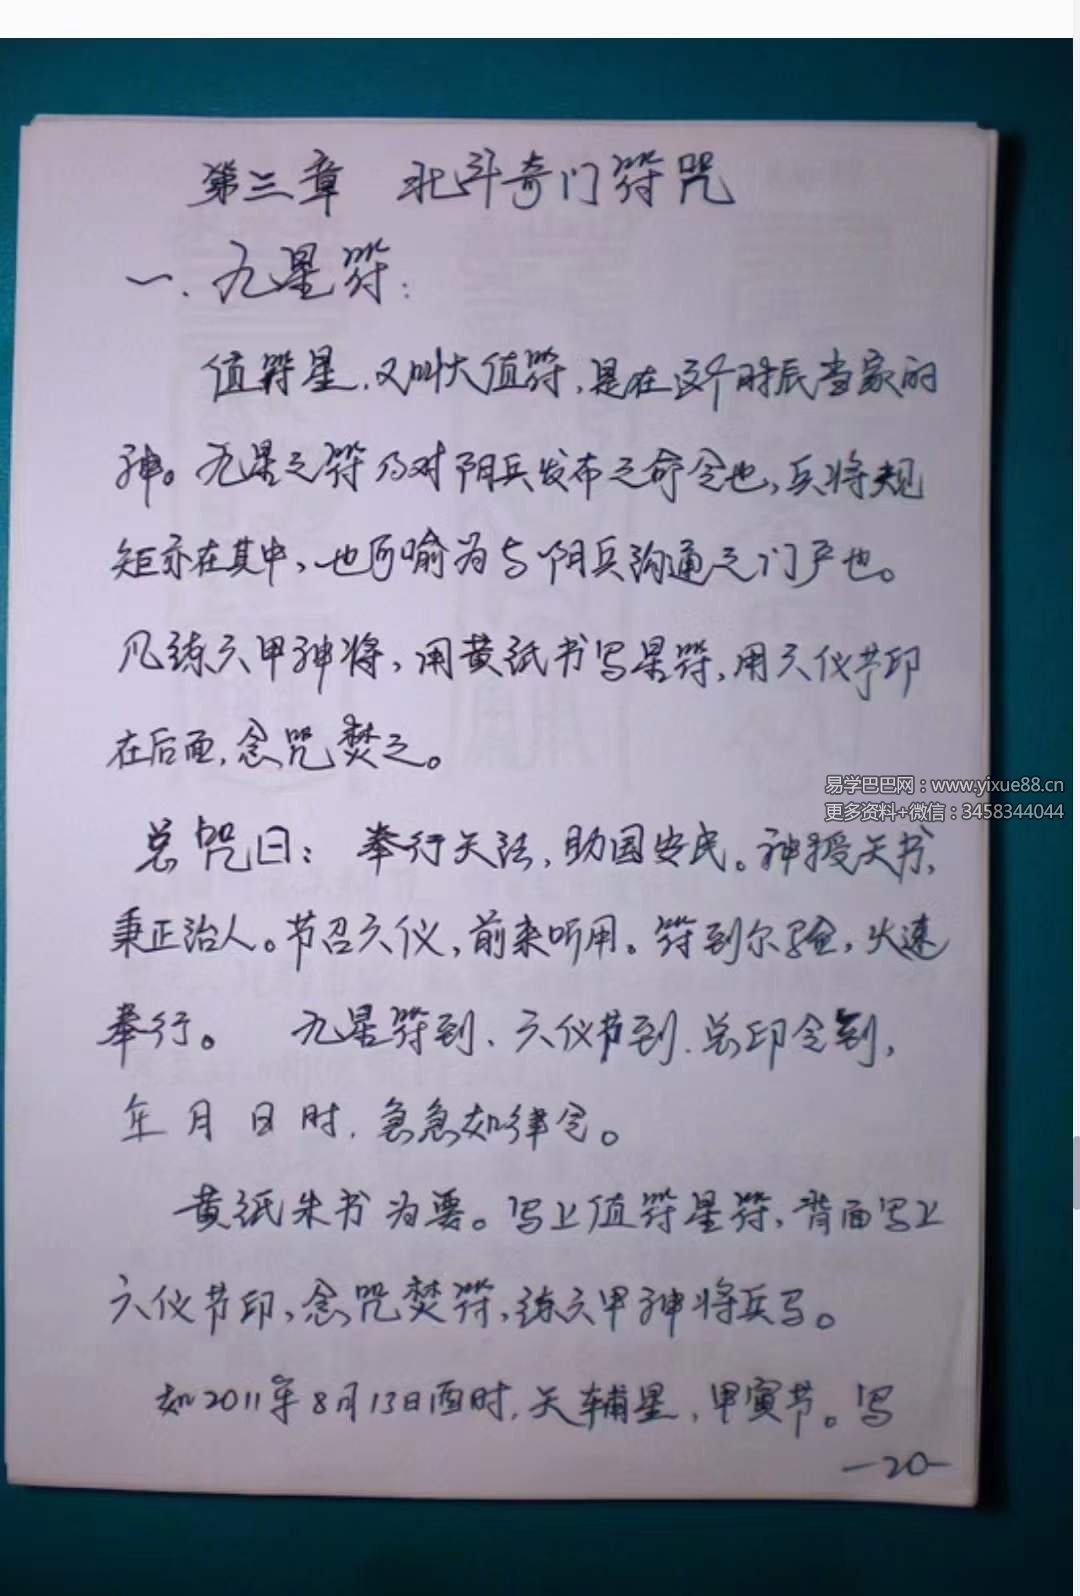 第三章 北斗奇门符咒
一、九星符:
值符星,又叫大值符,是在这个时辰当家的
神。九星之符乃对阴兵发布之命令也,兵将规
矩亦在其中,也可喻为与阴兵沟通之门户也。
凡练六甲神将,用黄纸书写星符,用六仪节印
在后面,念咒焚之。
易学巴巴网：www.yixue88.cn
更多资料+微信：3458344044
总咒曰: 奉行天法,助国安民。神授天书,
秉正治人。节召六仪,前来听用。符到尔验,火速
奉行。 九星符到、六仪节到、总印令到,
年 月 日 时,急急如律令。
黄纸朱书为要。写上值符星符,背面写上
六仪节印,念咒焚符,练六甲神将兵马。
如2011年8月13日酉时,天辅星,甲寅节。写
—20—